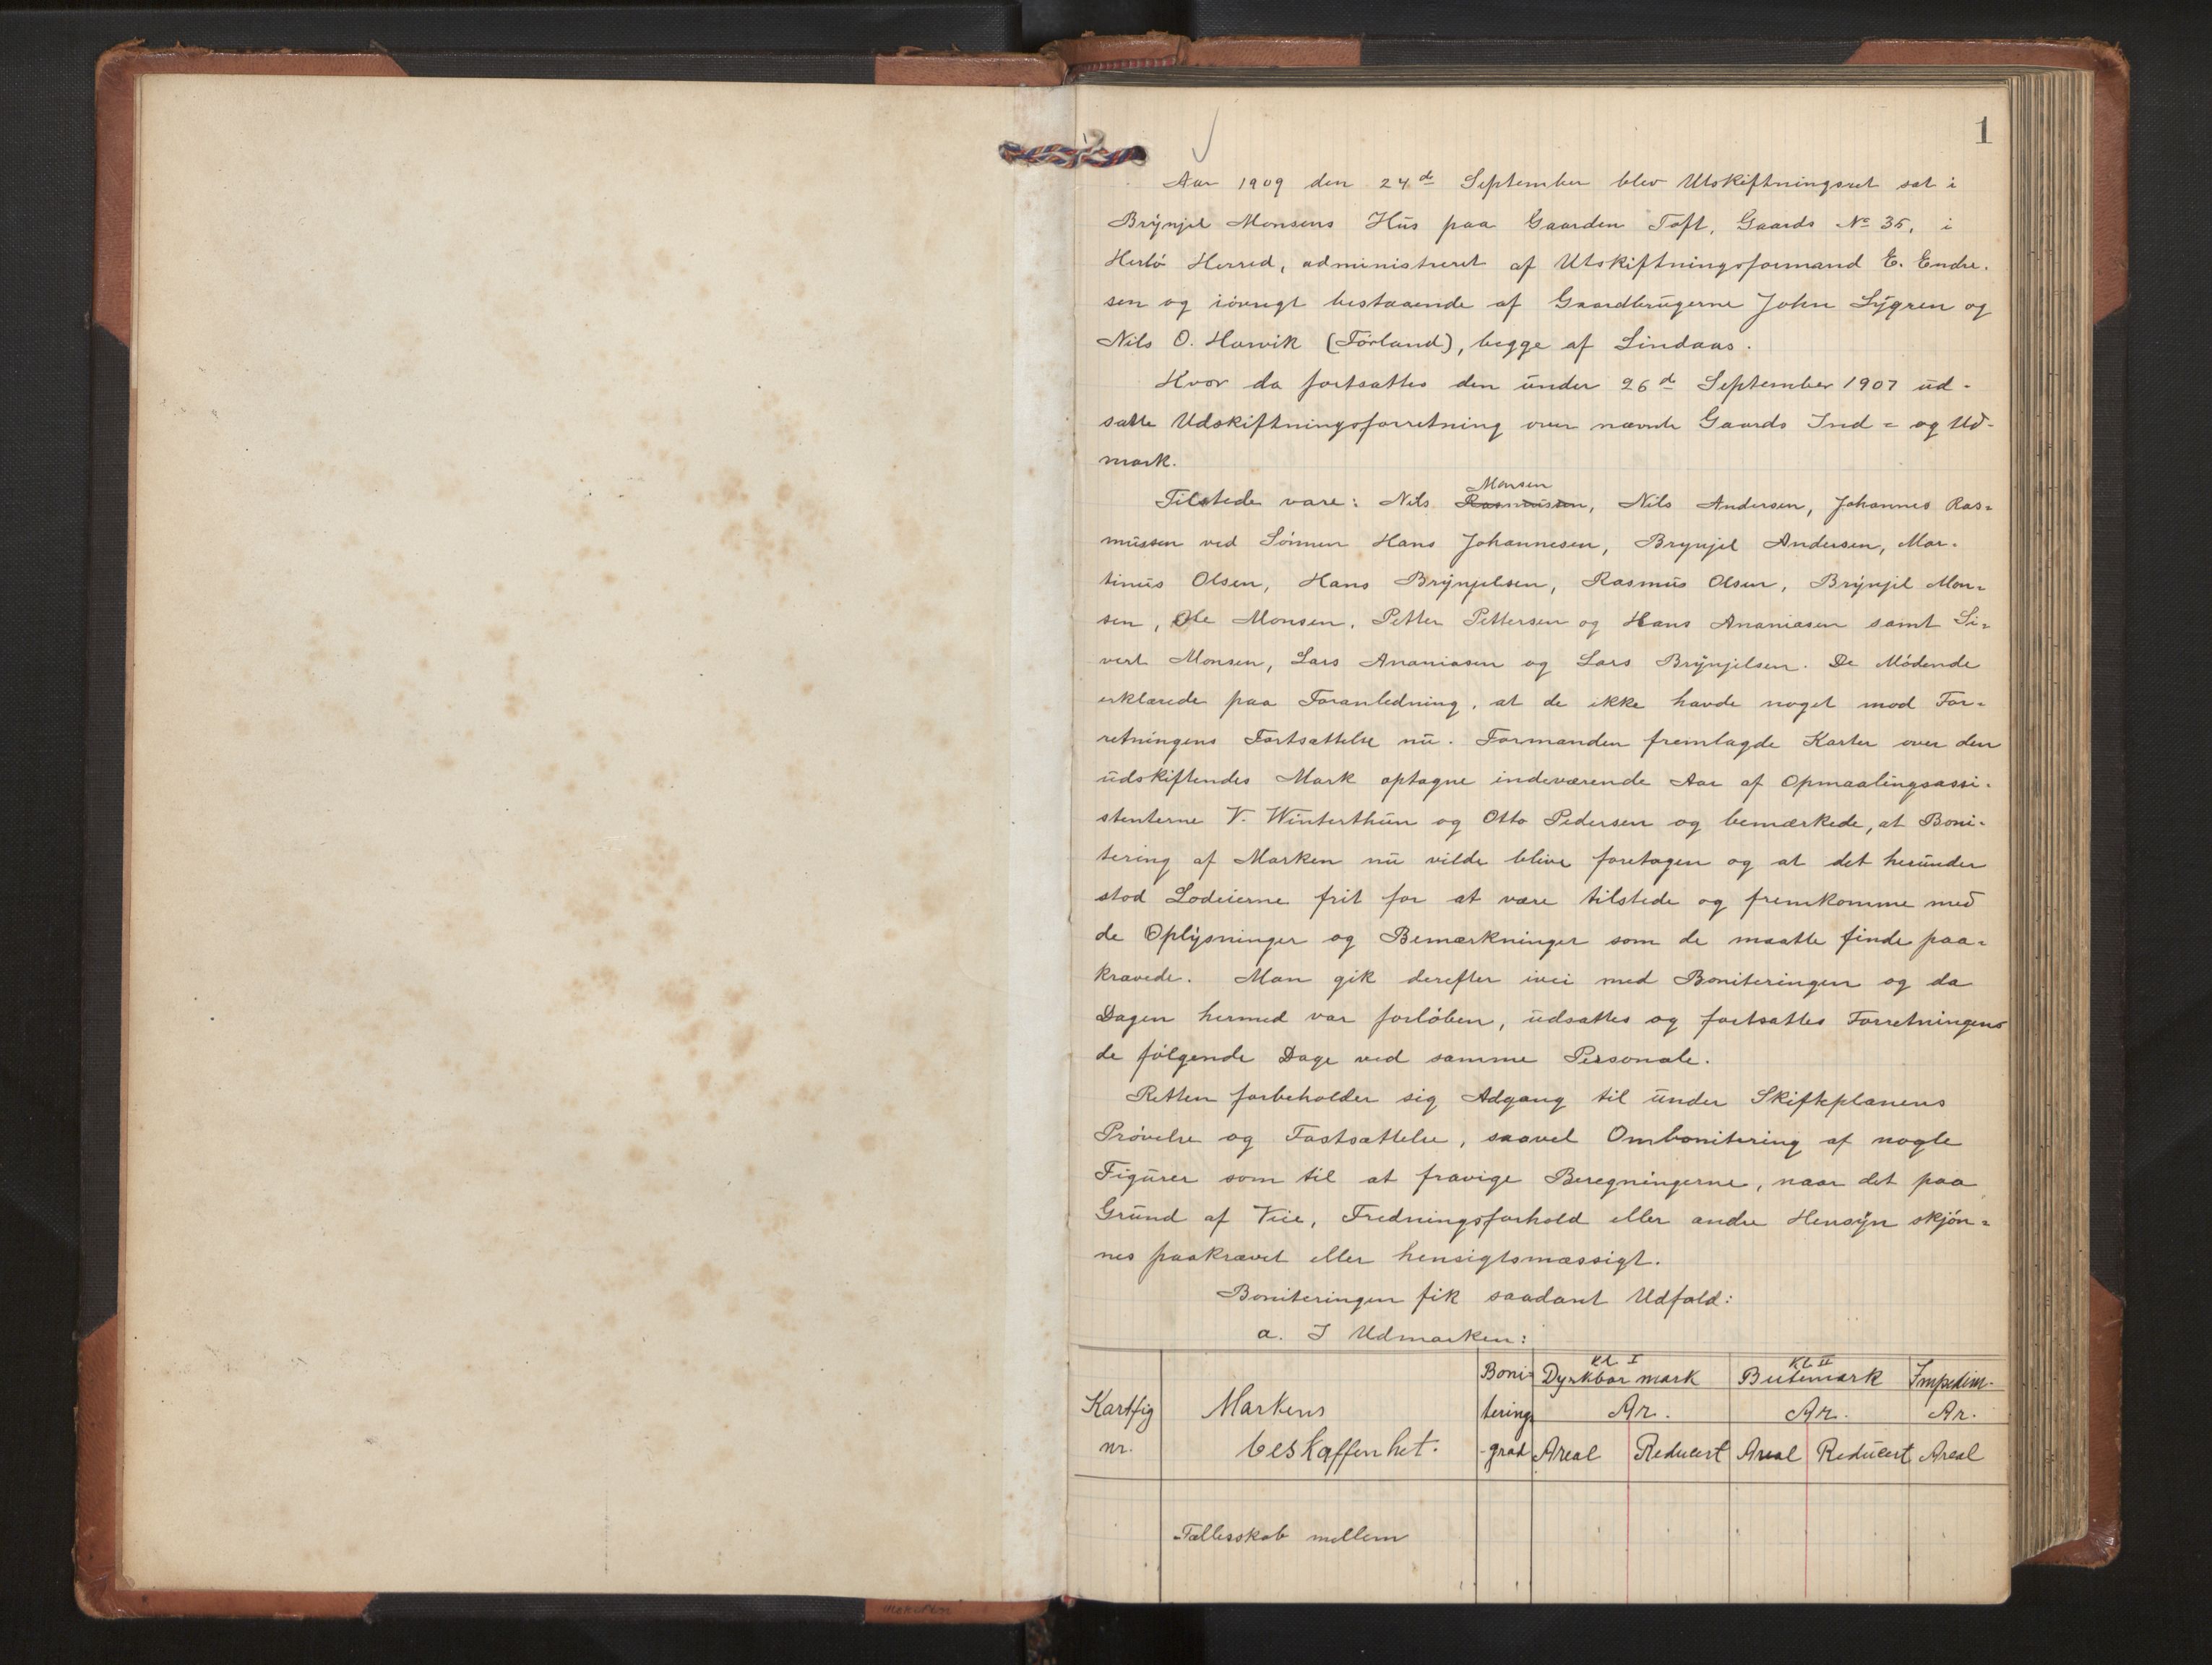 1
Aar 1909 den 24de September blev Utskiftningsret sat i
Brynjel Monsens Hus paa Gaarden Toft, Gaards No 35, i
Herlö Herred, administreret af Utskiftningsformand E. Endre-
sen og iövrigt bestaaende af Gaardbrugerne John Lygren og
Nils O. Harvik (Förland), begge af Lindaas.
Hvor da fortsattes den under 26de September 1907 ud-
satte Udskiftningsforretning over nævnte Gaards Ind- og Ud-
mark.
Monsen
Tilstede vare: Nils Rasmussen, Nils Andersen, Johannes Ras-
mussen ved Sönnen Hans Johannesen, Brynjel Andersen, Mar-
tinus Olsen, Hans Brynjelsen, Rasmus Olsen, Brynjel Mon-
sen, Ole Monsen, Petter Pettersen og Hans Ananiasen samt Si-
vert Monsen, Lars Ananiasen og Lars Brynjelsen. De Mödende
erklærede paa Foranledning, at de ikke havde noget mod For-
retningens Fortsættelse nu. Formanden fremlagde Karter over den
udskiftendes Mark optagne indeværende Aar af Opmaalingsassi-
stenterne V. Winterthun og Otto Pedersen og bemærkede, at Boni-
tering af Marken nu vilde blive foretagen og at det herunder
stod Lodeierne frit for at være tilstede og fremkomme med
de Oplysninger og Bemærkninger som de maatte finde paa-
krævede. Man gik derefter ivei med Boniteringen og da
Dagen hermed var forlöben, udsattes og fortsattes Forretningens
de fölgende Dage ved samme Personale.
Retten forbeholder sig Adgang til under Skifteplanens
Prövelse og Fastsættelse, saavel Ombonitering af nogle
Figurer som til at fravige Beregningerne, naar det paa
Grund af Veie, Fredningsforhold eller andre Hensyn skjön-
nes paakrævet eller hensigtsmæssigt.
Boniteringen fik saadant Udfald:
a. I Udmarken:
Kartfig nr.
Markens beskaffenhet.
Boniterings-grad
Kl. I Dyrkbar mark Ar. Areal Reducert
Kl. II Beitemark Ar. Areal Reducert
Impedim. Ar. Areal
Fællesskab mellem